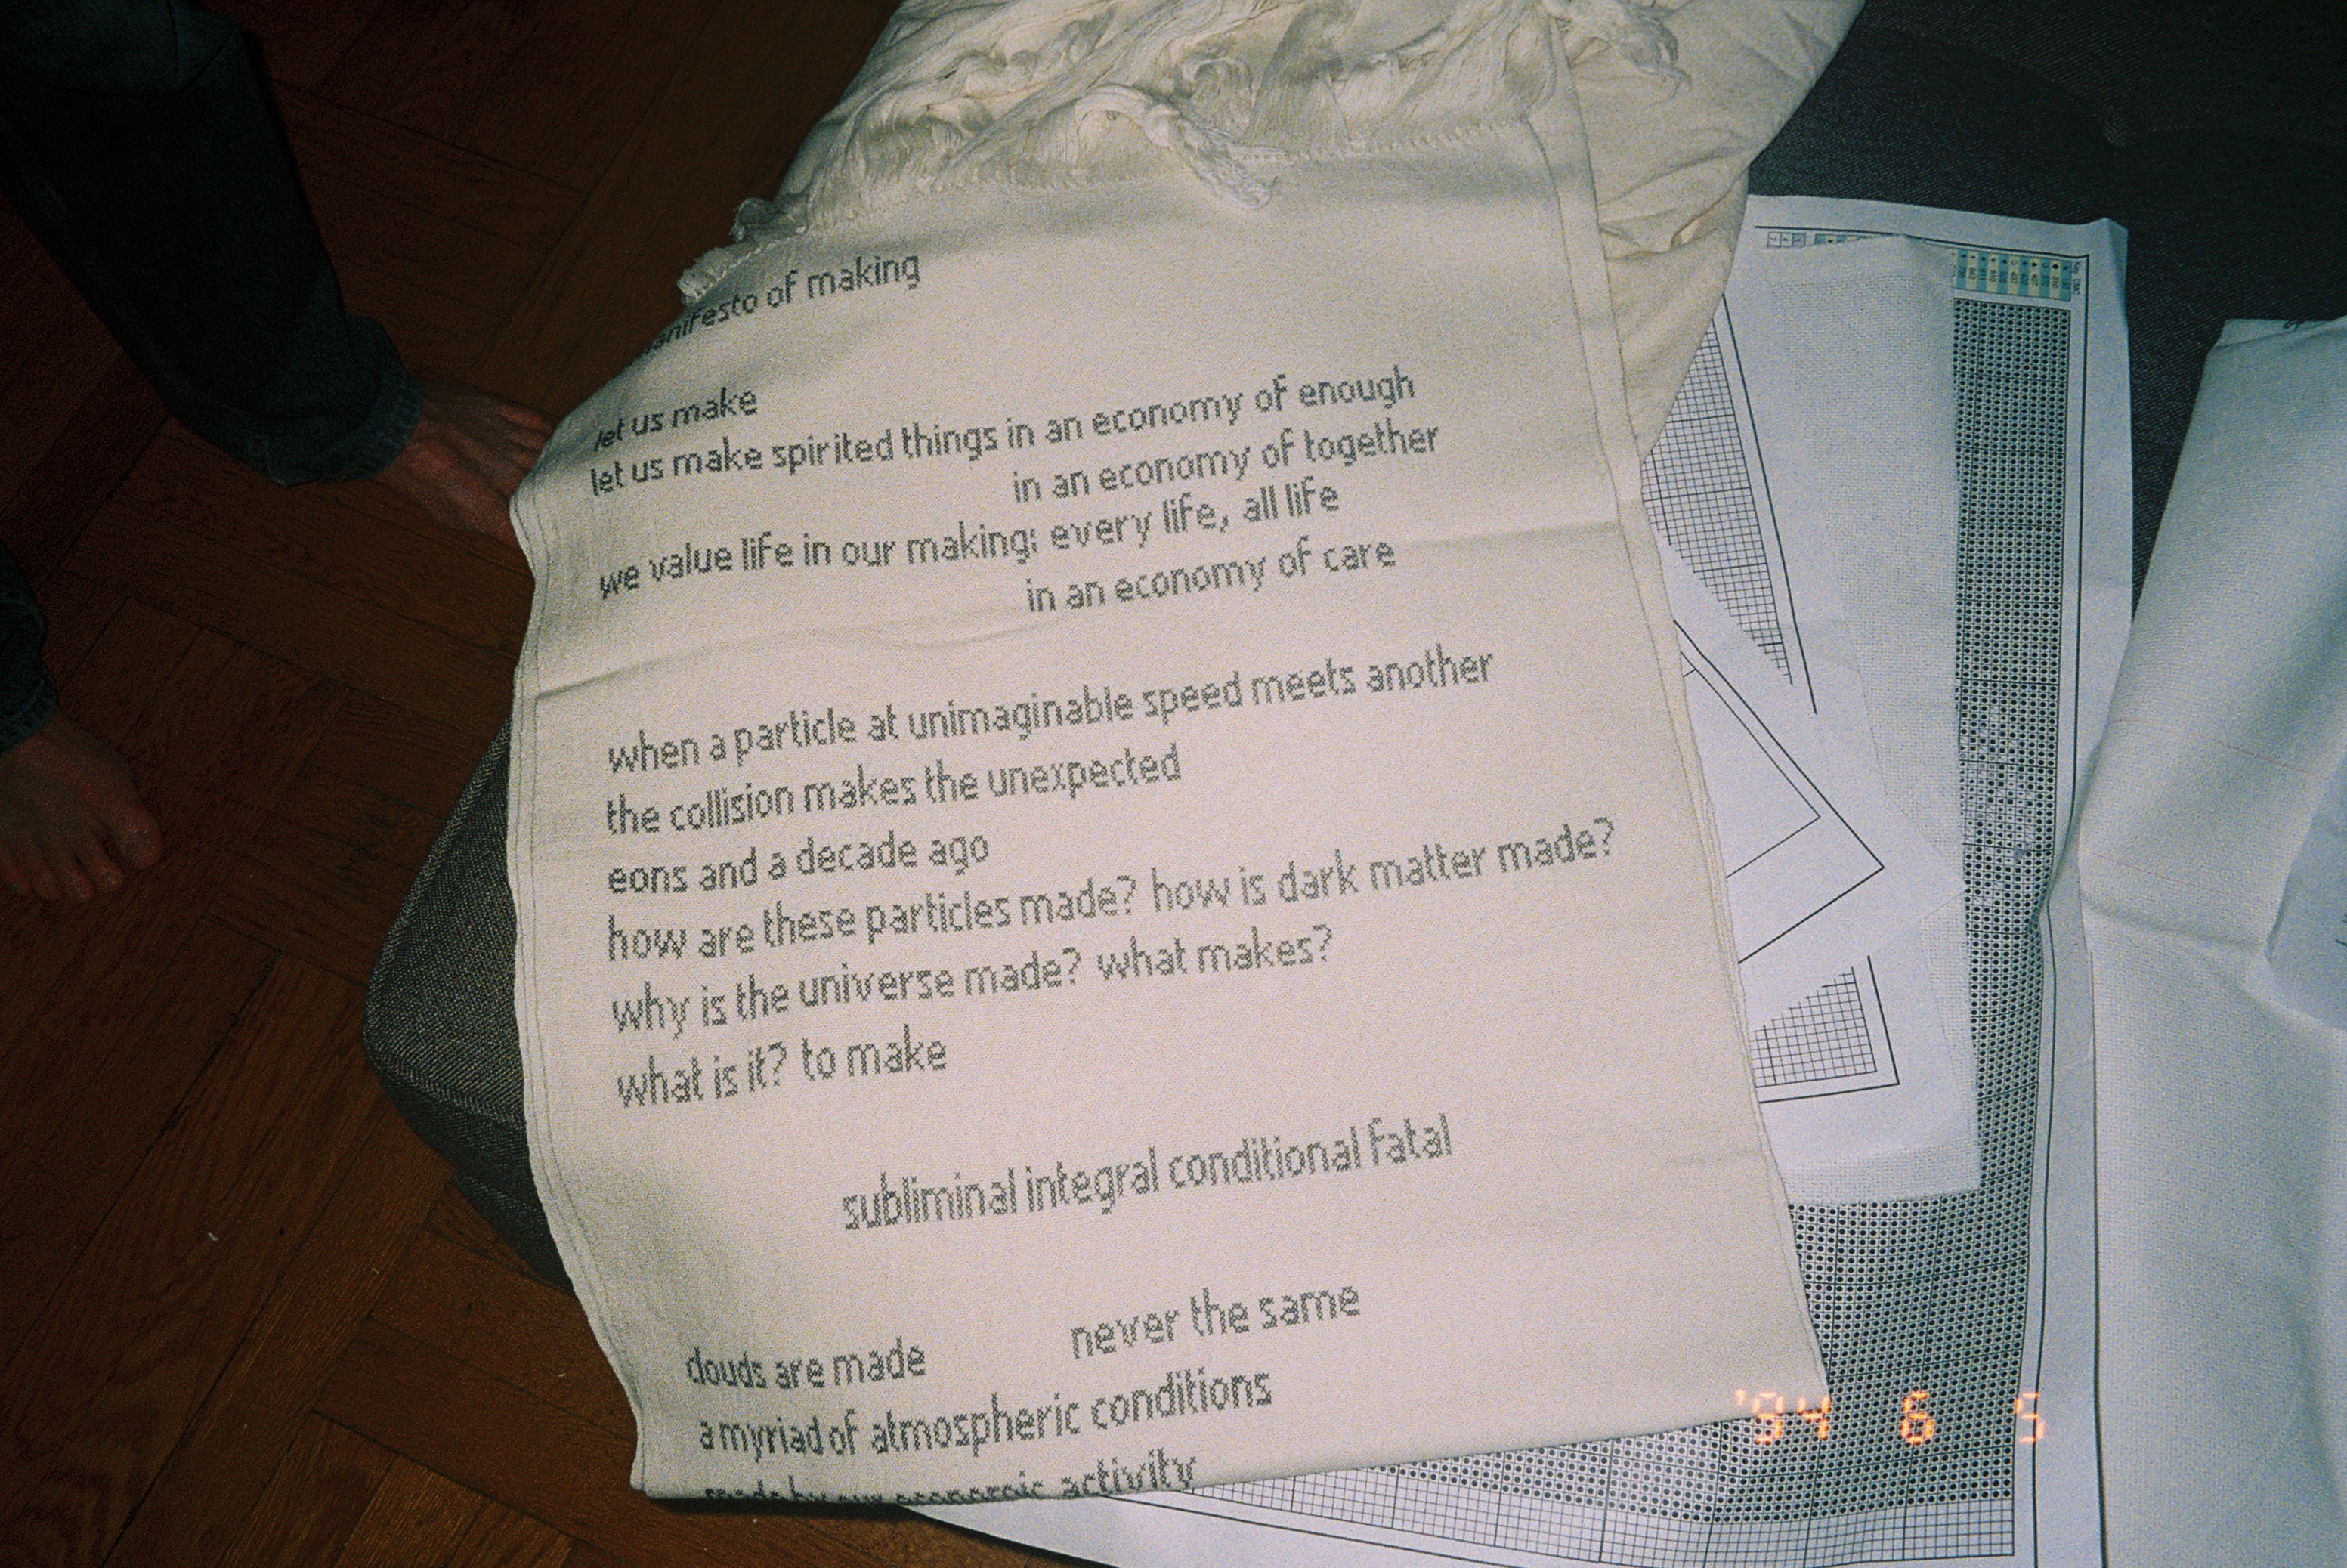 manifesto of making
let us make
let us make spirited things in an economy of enough
in an economy of together
we value life in our making: every life, all life
in an economy of care
when a particle at unimaginable speed meets another
the collision makes the unexpected
eons and a decade ago
how are these particles made? how is dark matter made?
why is the universe made? what makes?
what is it? to make
subliminal integral conditional fatal
clouds are made never the same
a myriad of atmospheric conditions
made by our economic activity
'94 6 5